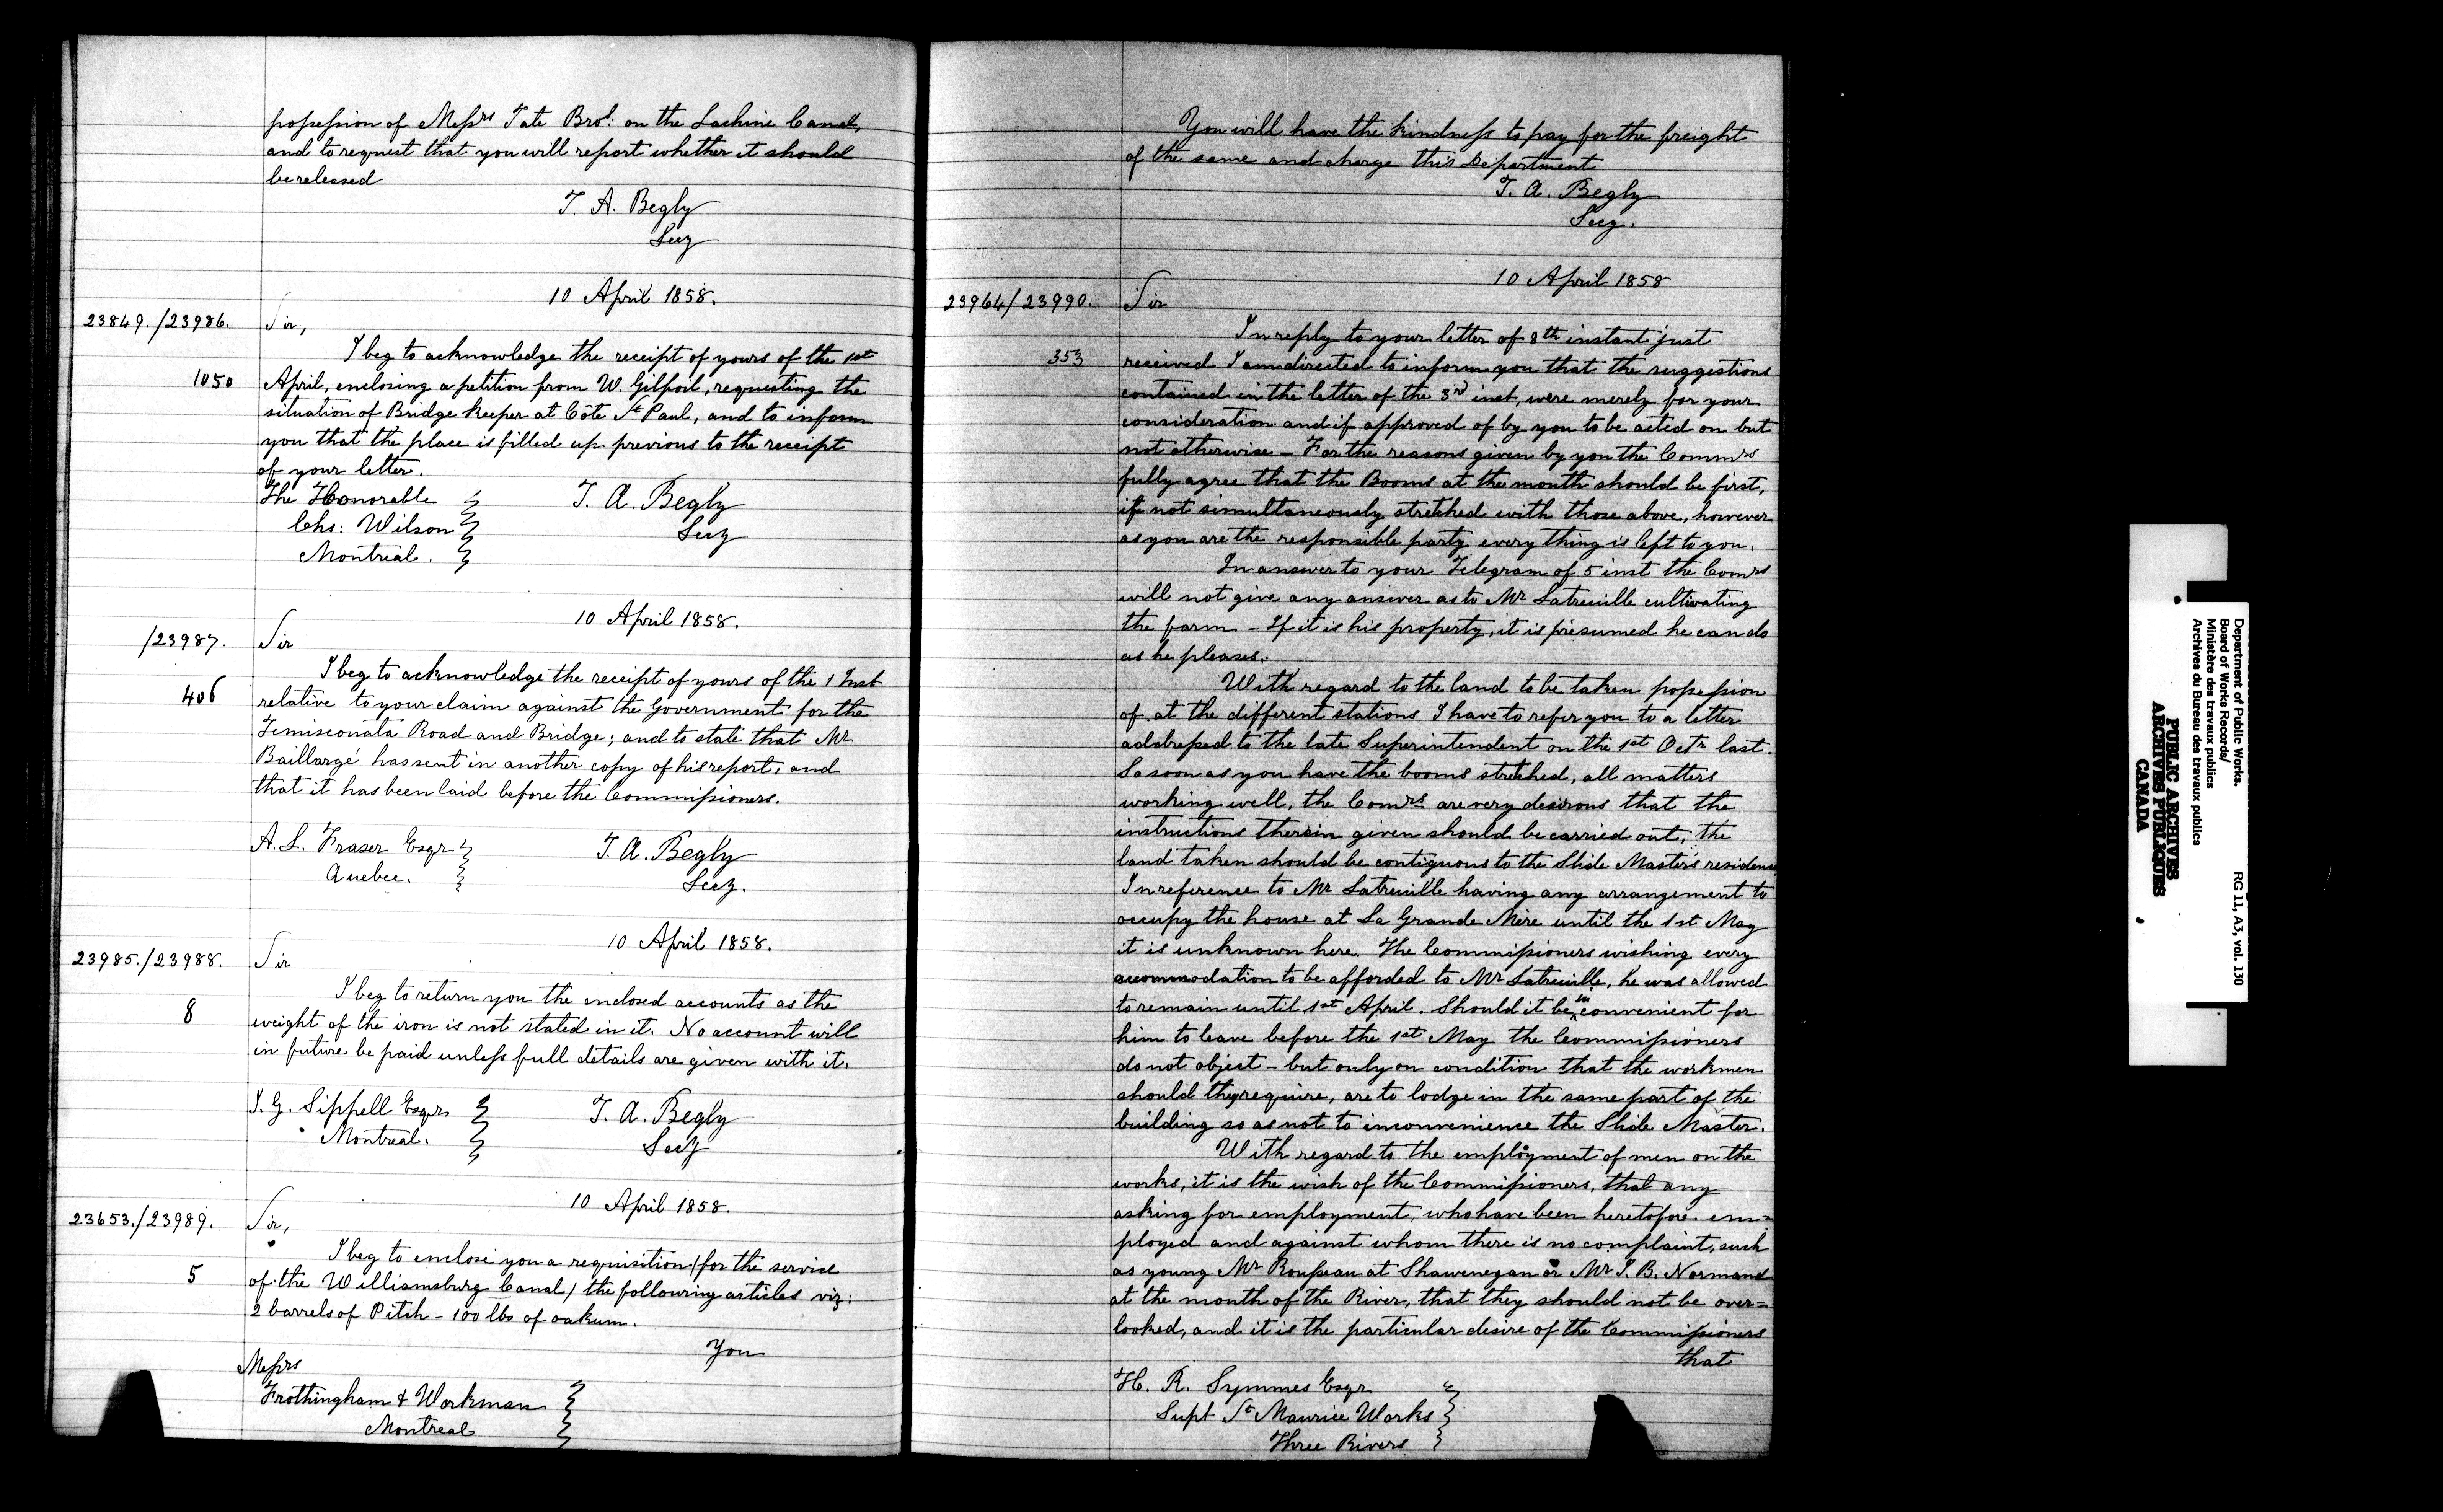 possession of Messrs Tate Bros: on the Lachine Canal,
and to request that you will report whether it should
be released
T. A. Begly
Secy
10 April 1858.
23849./23986.
Sir,
I beg to acknowledge the receipt of yours of the 1st
1050
April, enclosing a petition from W. Gilfoil, requesting the
situation of Bridge Keeper at Côte St Paul, and to inform
you that the place is filled up previous to the receipt
of your letter.
The Honorable
Chs: Wilson
Montreal.
T. A. Begly
Secy
10 April 1858.
/23987.
Sir
I beg to acknowledge the receipt of yours of the 1 Inst
406
relative to your claim against the Government for the
Temisconata Road and Bridge; and to state that Mr
Baillargé has sent in another copy of his report, and
that it has been laid before the Commissioners.
A. L. Fraser Esqr
Quebec.
T. A. Begly
Secy.
10 April 1858.
23985./23988.
Sir
I beg to return you the enclosed accounts as the
8
weight of the iron is not stated in it. No account will
in future be paid unless full details are given with it.
J. G. Sippell Esqr
Montreal.
T. A. Begly
Secy
10 April 1858.
23653./23989.
Sir,
I beg to enclose you a requisition (for the service
5
of the Williamsburg Canal) the following articles viz:
2 barrels of Pitch - 100 lbs of oakum.
You
Messrs
Frothingham & Workman
Montreal
You will have the kindness to pay for the freight
of the same and charge this Department
T. A. Begly
Secy.
10 April 1858
23964/23990.
Sir
In reply to your letter of 8th instant just
353
received I am directed to inform you that the suggestions
contained in the letter of the 3rd inst, were merely for your
consideration and if approved of by you to be acted on but
not otherwise - For the reasons given by you the Commrs
fully agree that the Booms at the mouth should be first,
if not simultaneously stretched with those above, however
as you are the responsible party every thing is left to you.
In answer to your Telegram of 5 inst the Comrs
will not give any answer as to Mr Latreuille cultivating
the farm - If it is his property, it is presumed he can do
as he pleases.
With regard to the land to be taken possession
of at the different stations I have to refer you to a letter
addressed to the late Superintendent on the 1st Octr last.
So soon as you have the booms stretched, all matters
working well, the Comrs are very desirous that the
instructions therein given should be carried out, the
land taken should be contiguous to the Slide Master's residence
In reference to Mr Latreuille having any arrangement to
occupy the house at La Grande Mère until the 1st May
it is unknown here. The Commissioners wishing every
accommodation to be afforded to Mr Latreuille, he was allowed
to remain until 1st April. Should it be inconvenient for
him to leave before the 1st May the Commissioners
do not object - but only on condition that the workmen
should they require, are to lodge in the same part of the
building so as not to inconvenience the Slide Master.
With regard to the employment of men on the
works, it is the wish of the Commissioners, that any
asking for employment, who have been heretofore em=
ployed and against whom there is no complaint, such
as young Mr Rousseau at Shawenegan or Mr J. B. Normand
at the mouth of the River, that they should not be over=
looked, and it is the particular desire of the Commissioners
that
H. R. Symmes Esqr
Supt St Maurice Works
Three Rivers
Department of Public Works.
Board of Works Records/
Ministère des travaux publics
Archives du Bureau des travaux publics
RG 11, A3, vol. 130
PUBLIC ARCHIVES
ARCHIVES PUBLIQUES
CANADA